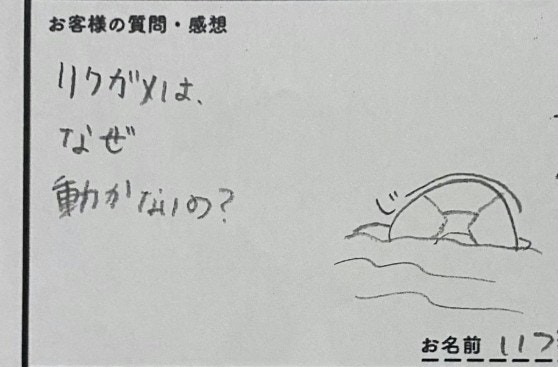 お客様の質問・感想
リクガメは、
なぜ
動かないの?
じ
お名前